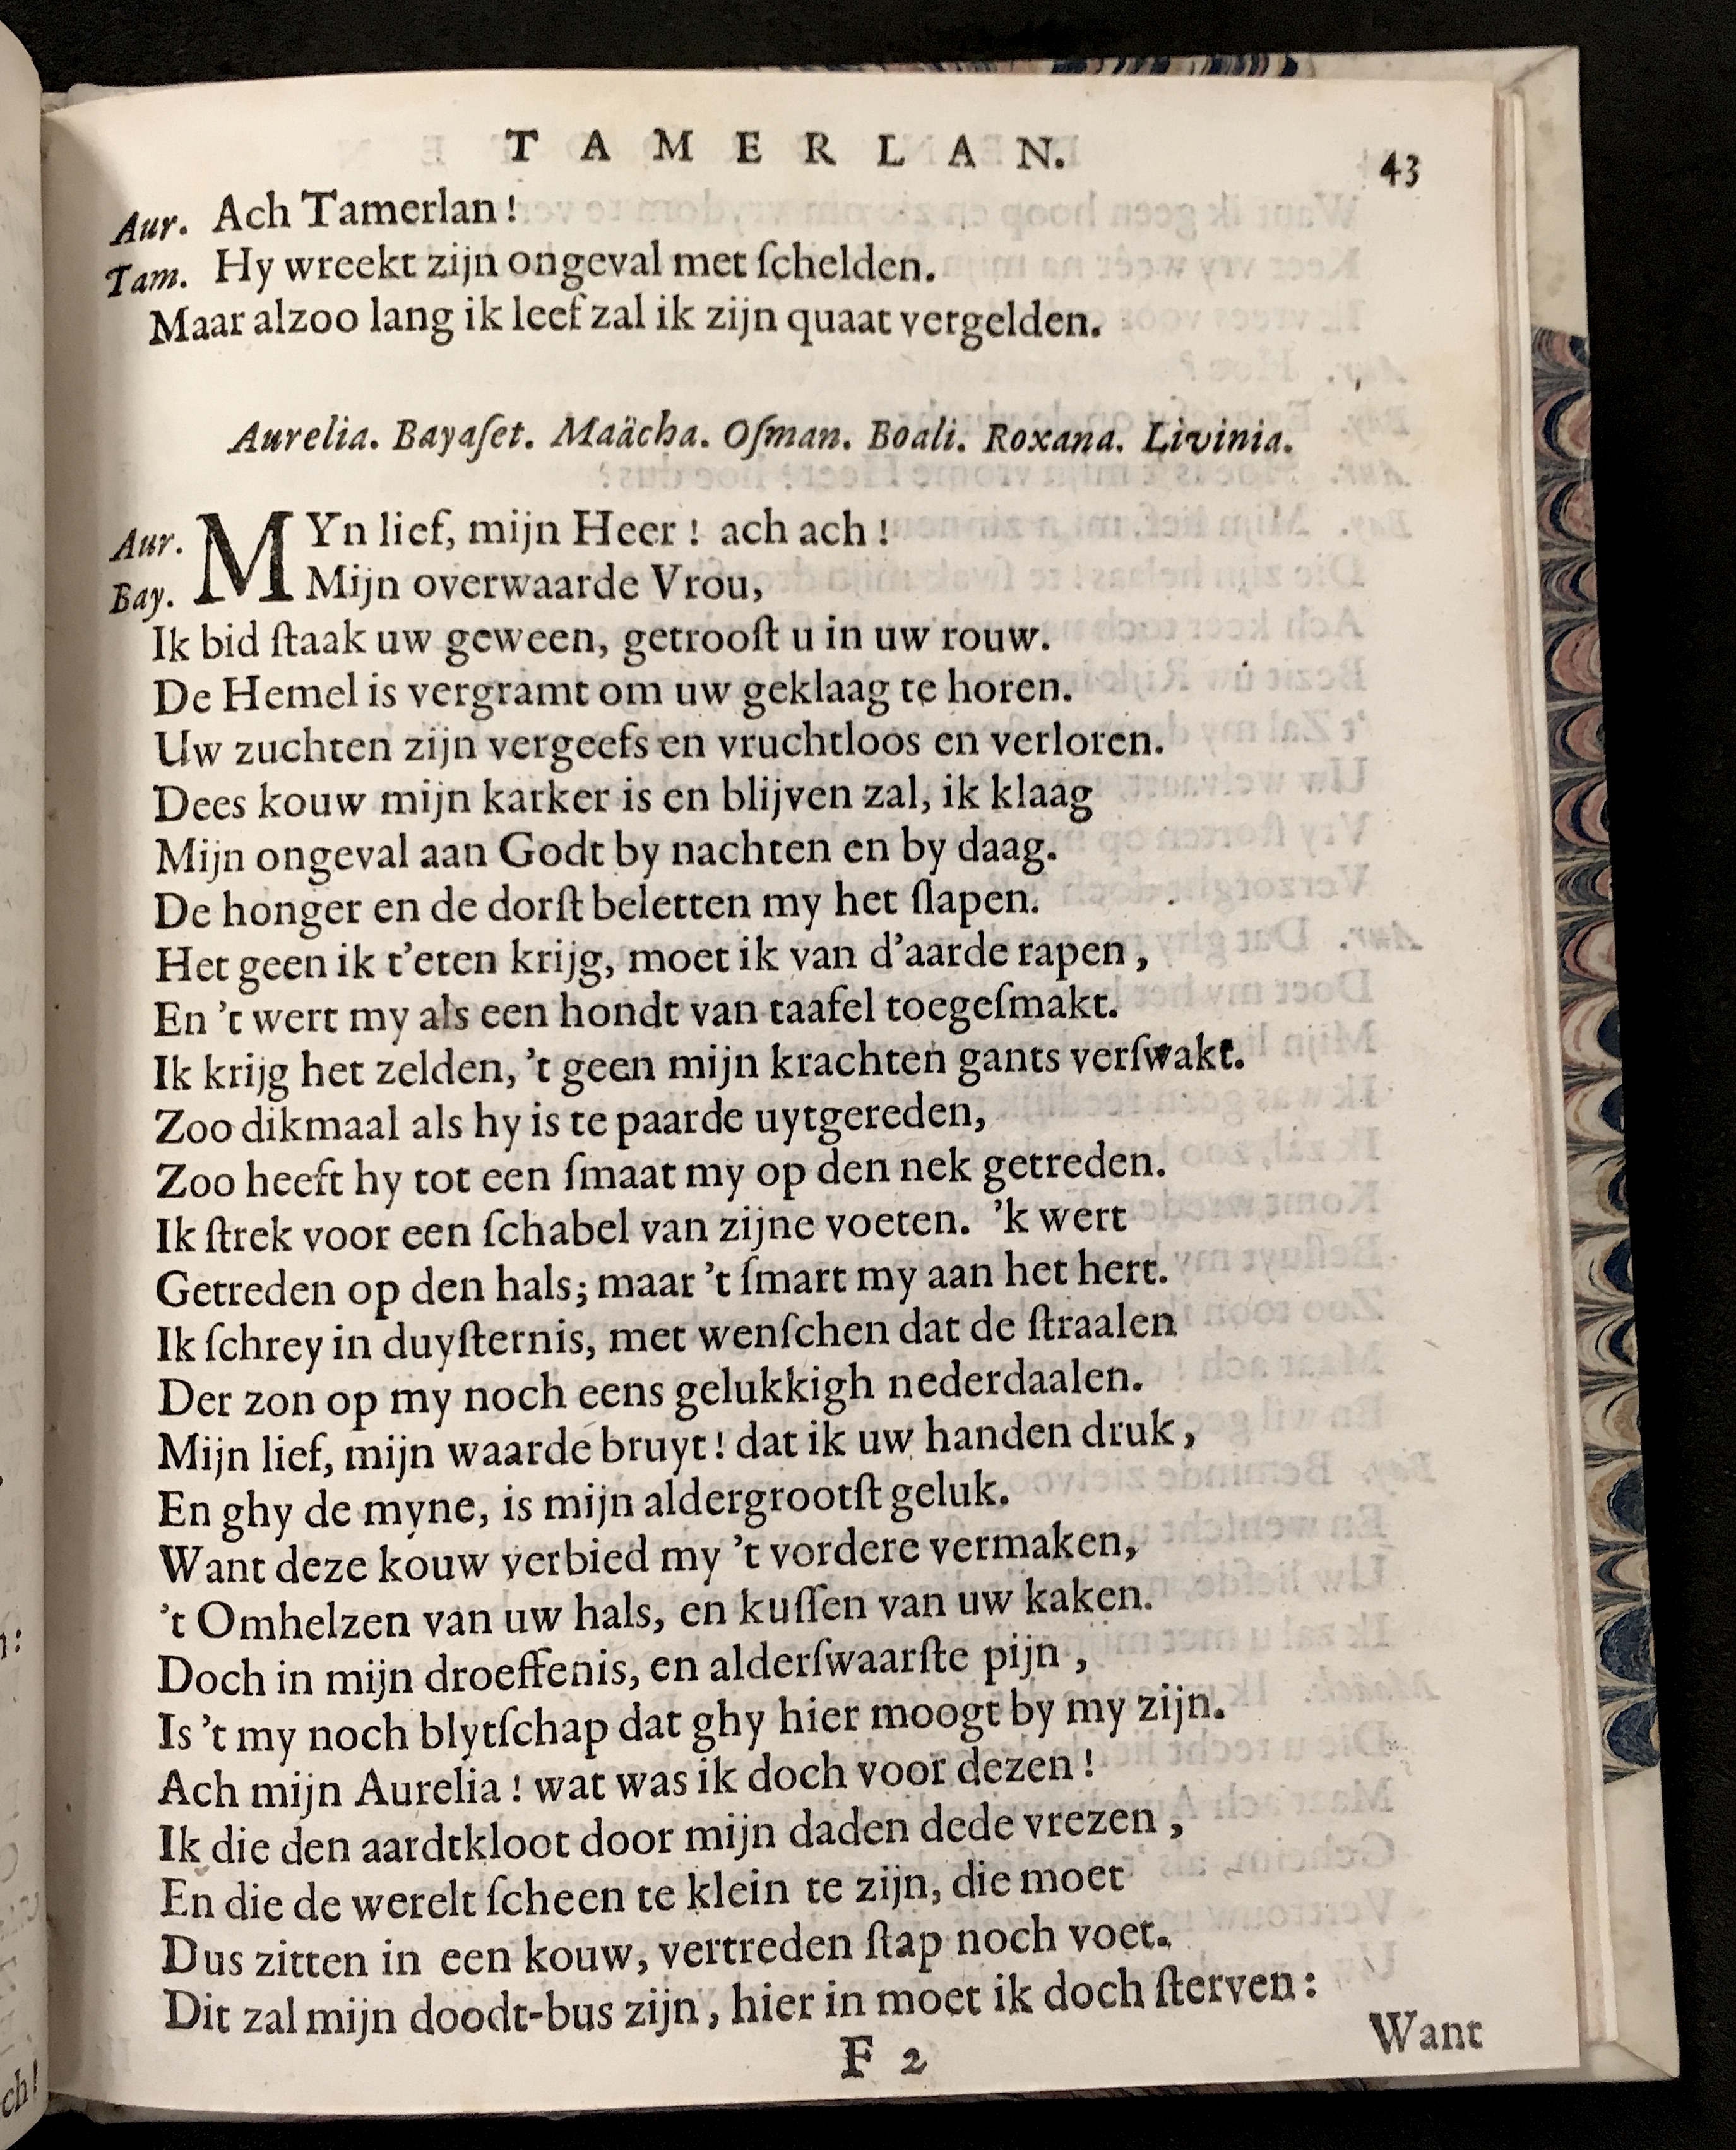 TAMERLAN. 43
Aur. Ach Tamerlan!
Tam. Hy wreekt zijn ongeval met ſchelden.
Maar alzoo lang ik leef zal ik zijn quaat vergelden.
Aurelia. Bayaſet. Maächa. Oſman. Boali. Roxana. Livinia.
Aur. MYn lief, mijn Heer! ach ach!
Bay. Mijn overwaarde Vrou,
Ik bid ſtaak uw geween, getrooſt u in uw rouw.
De Hemel is vergramt om uw geklaag te horen.
Uw zuchten zijn vergeefs en vruchtloos en verloren.
Dees kouw mijn karker is en blijven zal, ik klaag
Mijn ongeval aan Godt by nachten en by daag.
De honger en de dorſt beletten my het ſlapen.
Het geen ik t'eten krijg, moet ik van d'aarde rapen,
En 't wert my als een hondt van taafel toegeſmakt.
Ik krijg het zelden, 't geen mijn krachten gants verſwakt.
Zoo dikmaal als hy is te paarde uytgereden,
Zoo heeft hy tot een ſmaat my op den nek getreden.
Ik ſtrek voor een ſchabel van zijne voeten. 'k wert
Getreden op den hals; maar 't ſmart my aan het hert.
Ik ſchrey in duyſternis, met wenſchen dat de ſtraalen
Der zon op my noch eens gelukkigh nederdaalen.
Mijn lief, mijn waarde bruyt! dat ik uw handen druk,
En ghy de myne, is mijn aldergrootſt geluk.
Want deze kouw verbied my 't vordere vermaken,
't Omhelzen van uw hals, en kuſſen van uw kaken.
Doch in mijn droeffenis, en alderſwaarſte pijn,
Is 't my noch blytſchap dat ghy hier moogt by my zijn.
Ach mijn Aurelia! wat was ik doch voor dezen!
Ik die den aardtkloot door mijn daden dede vrezen,
En die de werelt ſcheen te klein te zijn, die moet
Dus zitten in een kouw, vertreden ſtap noch voet.
Dit zal mijn doodt-bus zijn, hier in moet ik doch ſterven:
F 2 Want